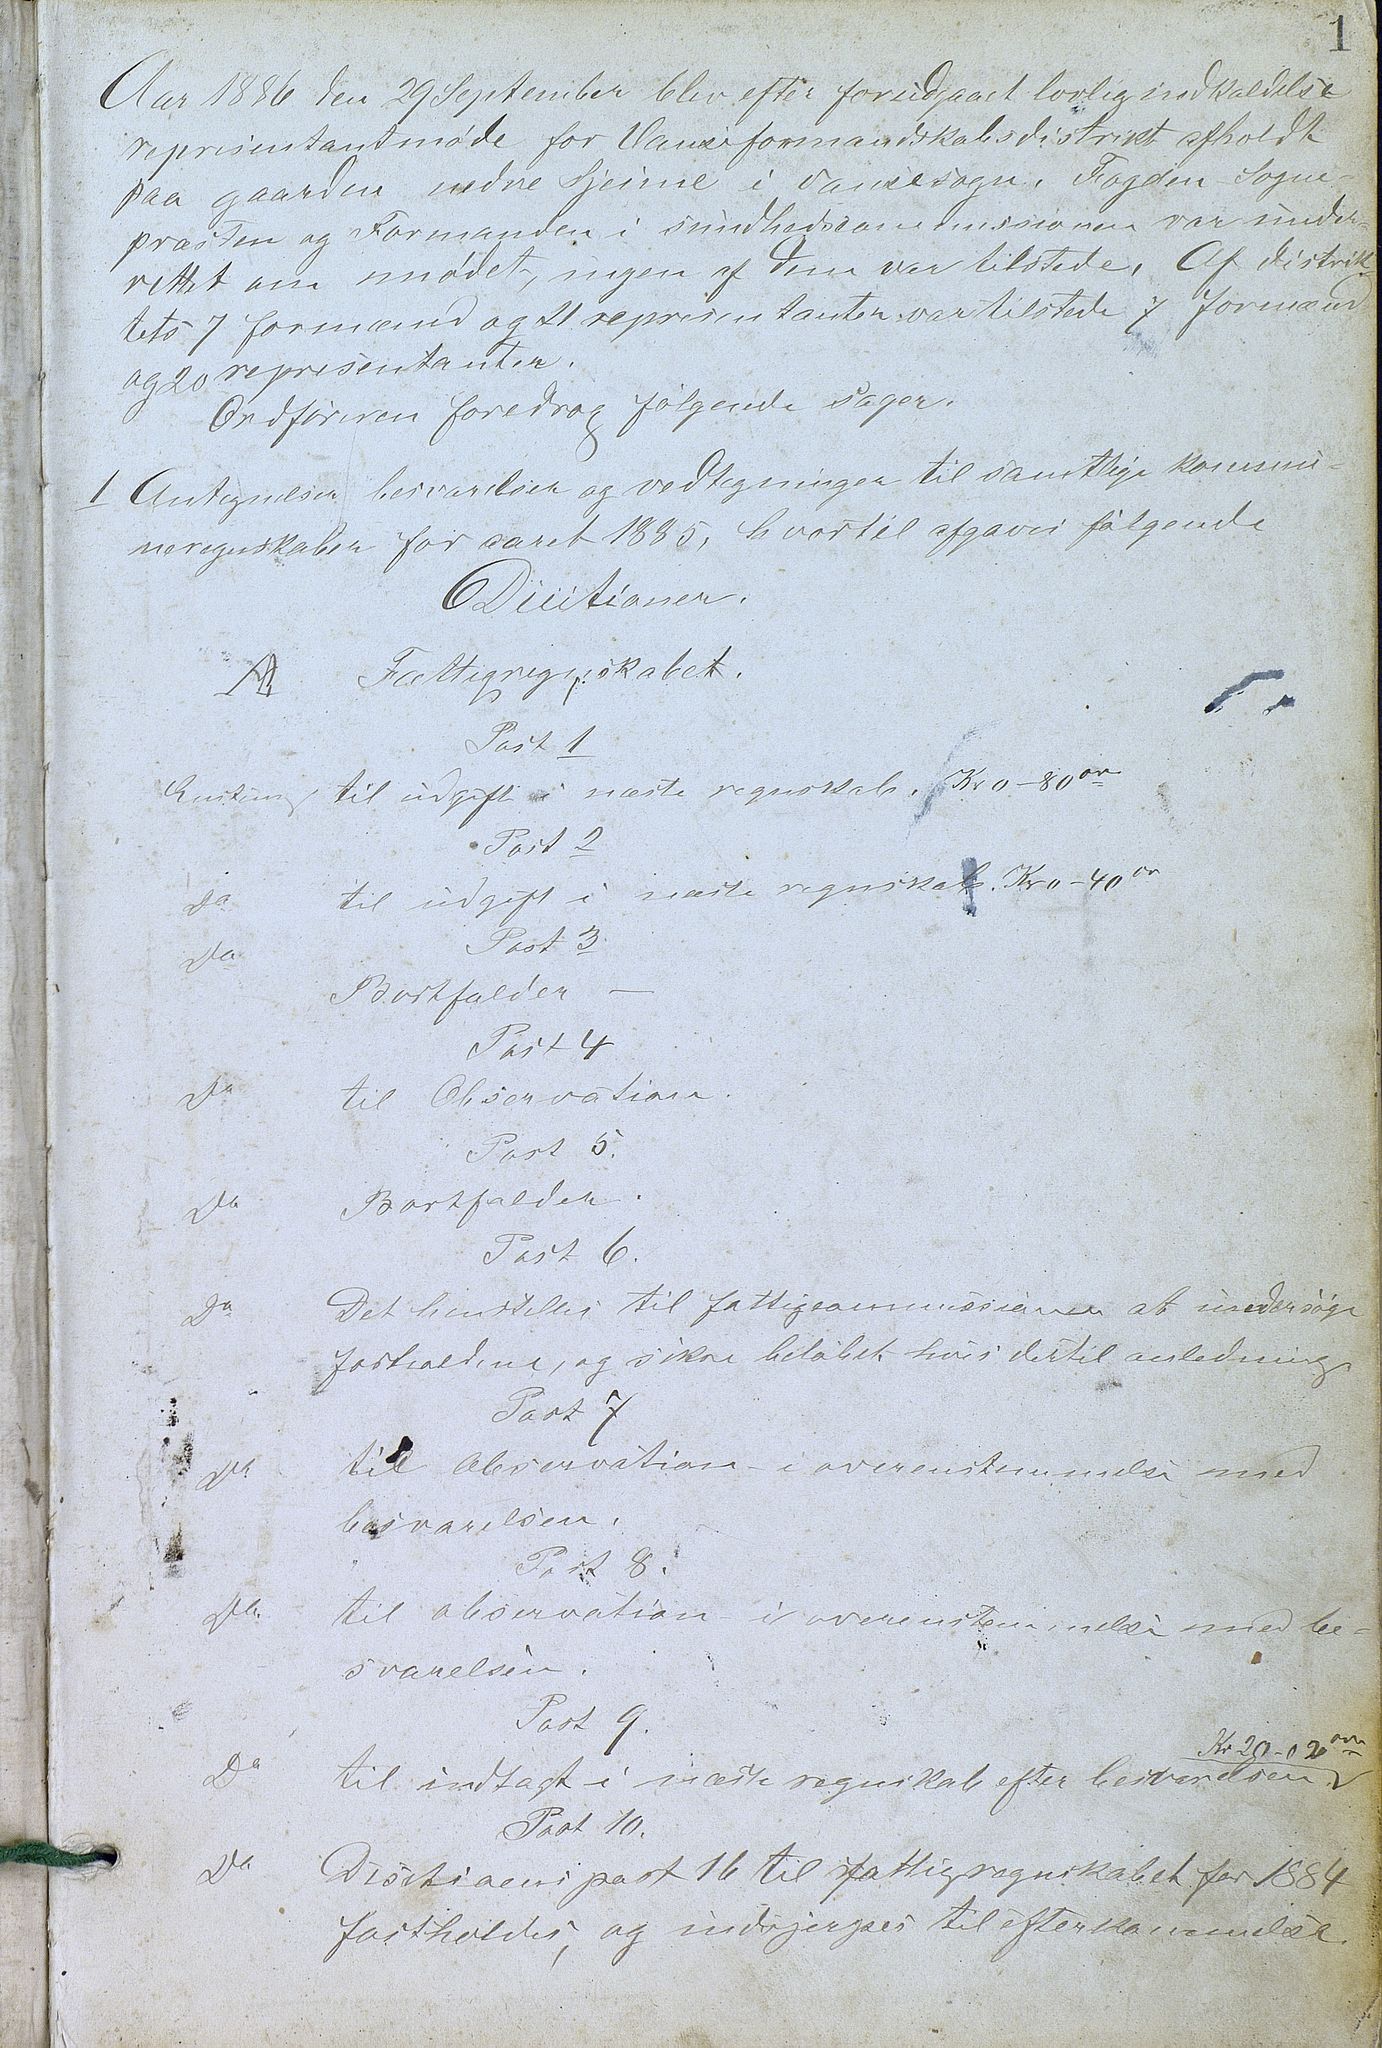 1
Aar 1886 den 29 September blev efter forudgaaet lovlig indkaldelse
represintantmøde for Vanseformandskabsdistrikt afholdt
paa gaarden nedre Hjeime i Vansesogn. Fogden Sogne-
præsten og Formanden i sundhedscommissionen var under-
rettet om mødet, ingen af dem var tilstede. Af distrik-
tets 7 formænd og 21 represintanter var tilstede 7 formænd
og 20 represintanter.
Ordføreren foredrog følgende sager.
1 Antegnelser besvarelser og vedtegninger til samtlige kommu-
neregnskaber for aaret 1885, hvortil afgaves følgende
Decitioner.
A Fattigregnskabet.
Post 1
Enstemig til udgift i næste regnskab. Kr 0-80 ør
Post 2
Do til udgift i næste regnskab. Kr 0-40 ør
Post 3
Do
Bortfalder —
Post 4
Do til Observation.
Post 5.
Do Bortfalder.
Post 6.
Do Det henstilles til fattigcommissionen at undersøge
forholdene, og sikre beløbet hvis dertil anledning
Post 7
Do til Observation i overenstemmelse med
besvarelsen.
Post 8.
Do til observation i overenstemmelse med be-
svarelsen.
Post 9.
Kr 20-02 øre
Do til indtægt i næste regnskab efter besvarelsen
Post 10.
Do Disitionens post 16 til fattigregnskabet for 1884
fastholdes, og indsjerpes til efterkommelse.